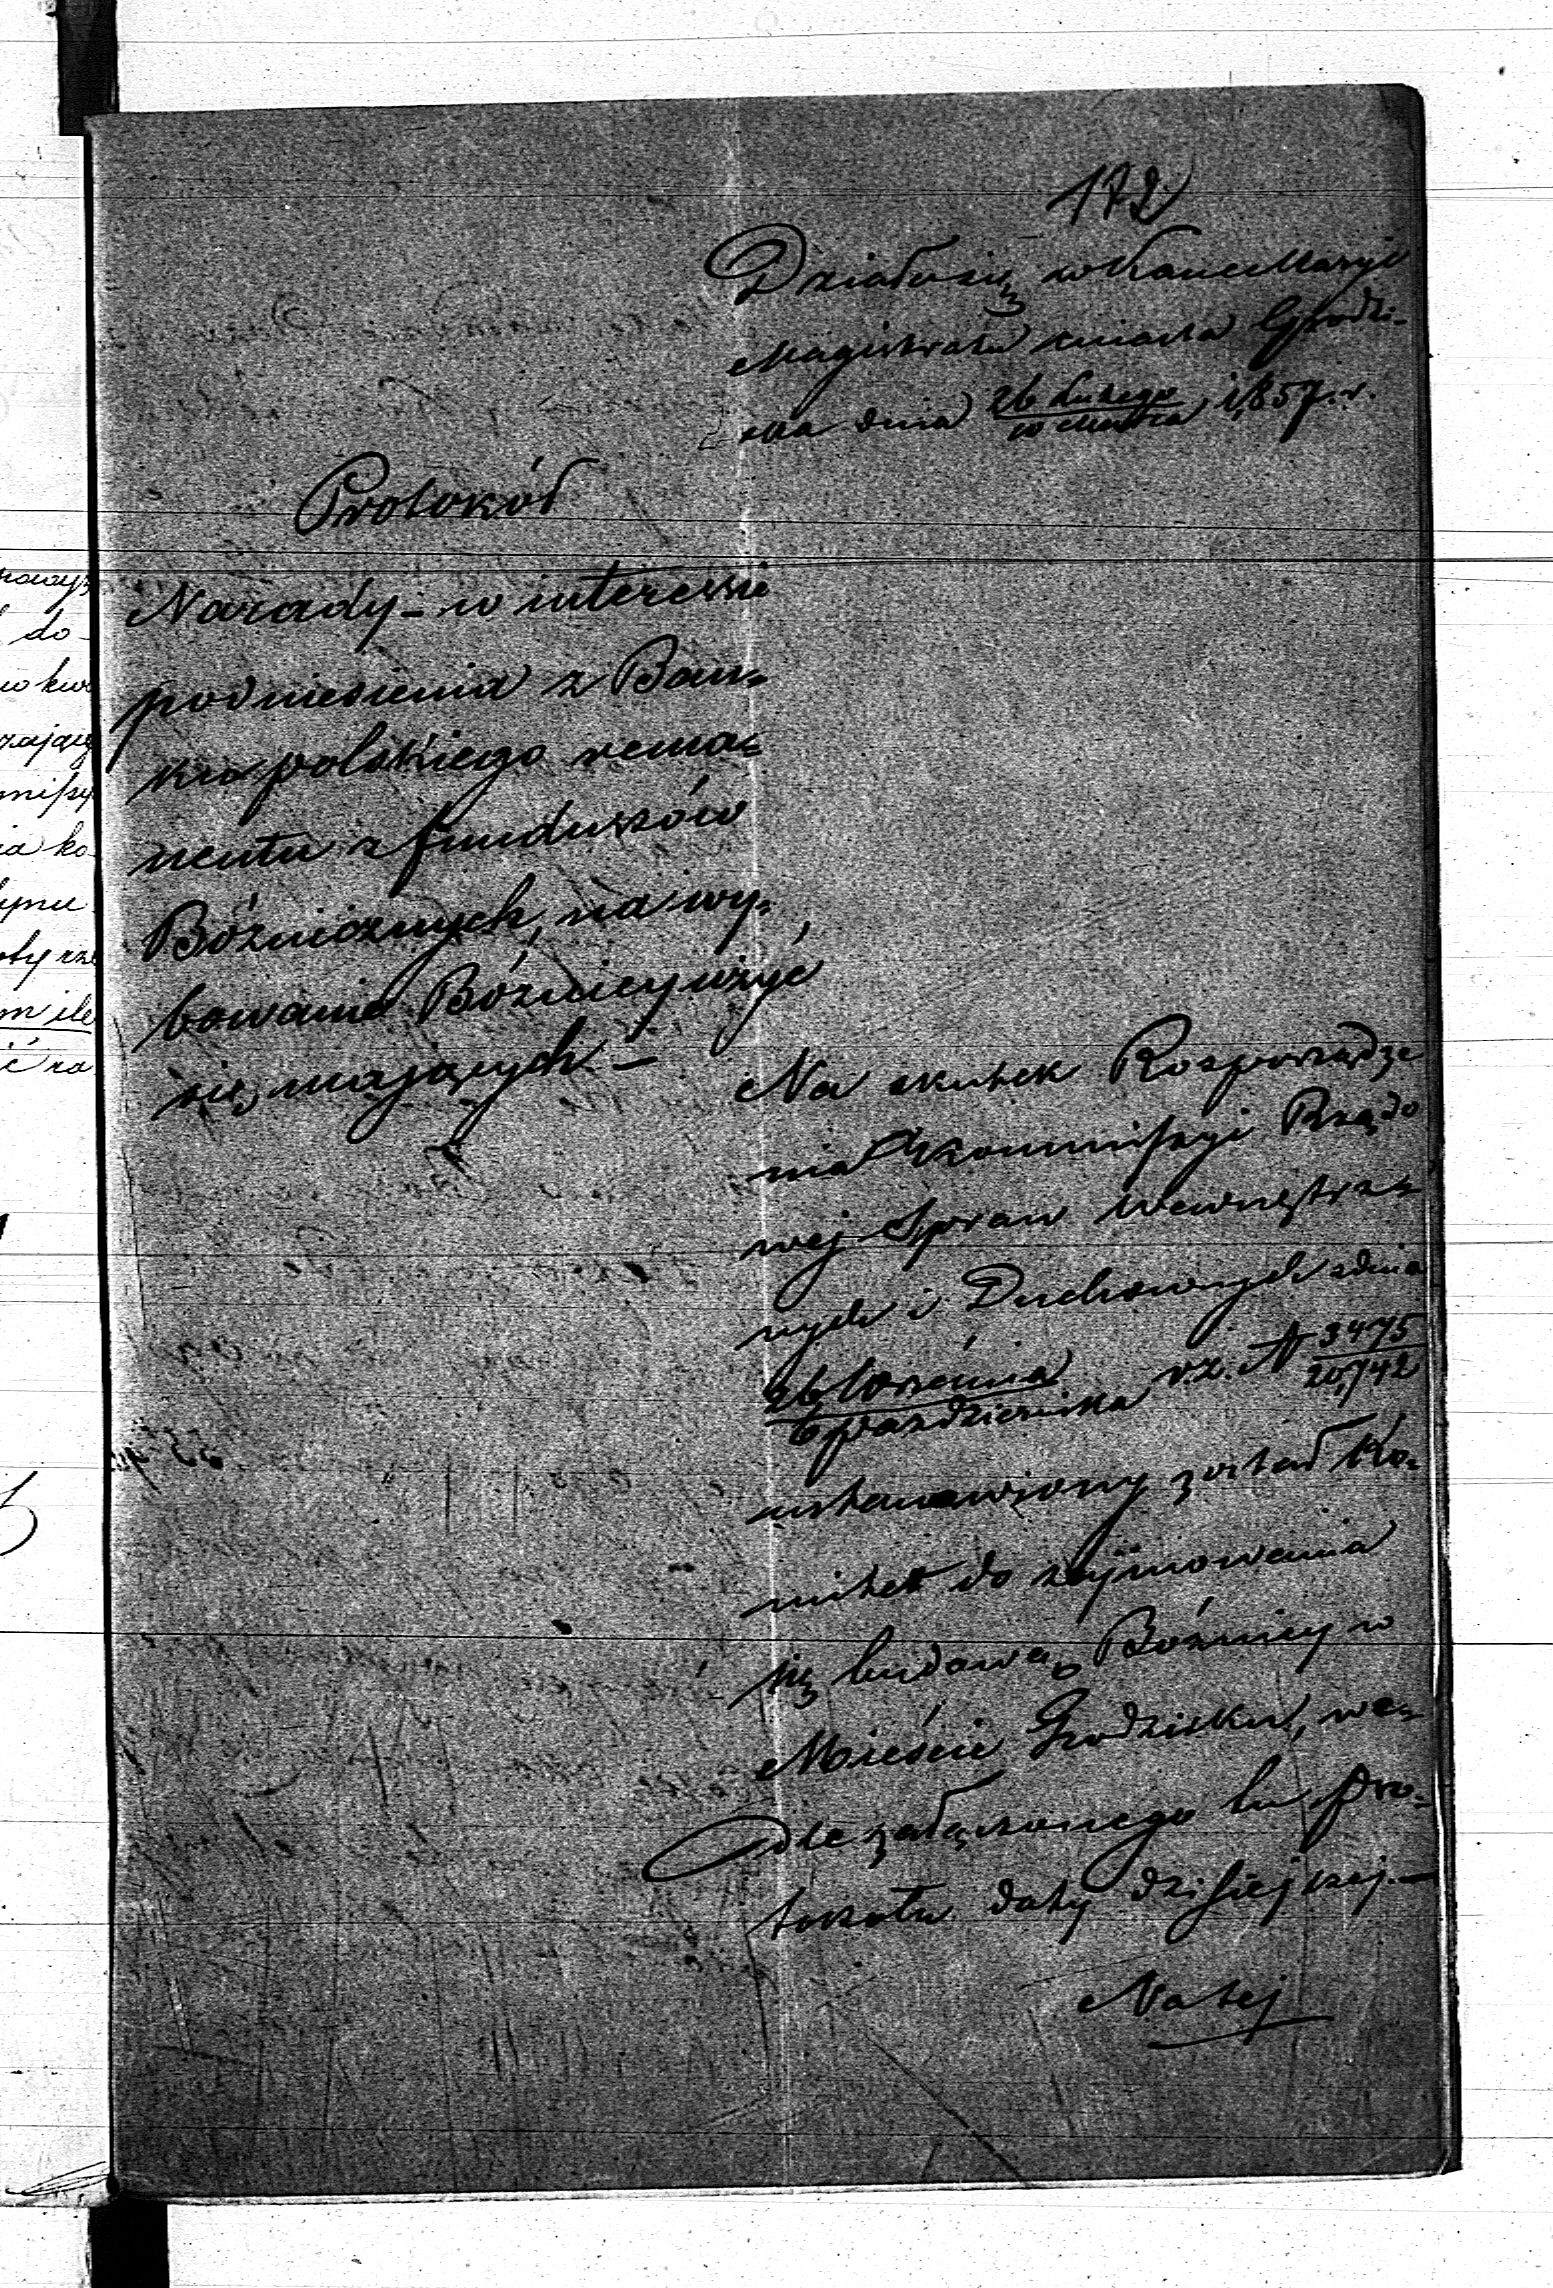 172
Działo się w Kancellaryi
Magistratu miasta Grodzi-
ska dnia 26 Lutego / 10 Marca 1857. r.
Protokół
Narady - w interessie
podniesienia z Ban-
ku polskiego rema-
nentu z funduszów
Bóźniczych, na wy-
bowanie Bóźnicy użyć
się mających. -
Na skutek Rosporządze
nia Kommissyi Rządo
wej Spraw Wewnętrz-
nych i Duchownych z dnia
26 Września / 8 pazdziernika r.z. N 3475 / 20,742
ustanowiony został Ko-
mitet do zajmowania
się budową Bóźnicy w
Mieście Grodzisku, we-
dle załączonego tu pro-
tokołu daty dzisiejszej. -
Na tej
powyż
do
zając
missy
ia ko
m ile
ić za